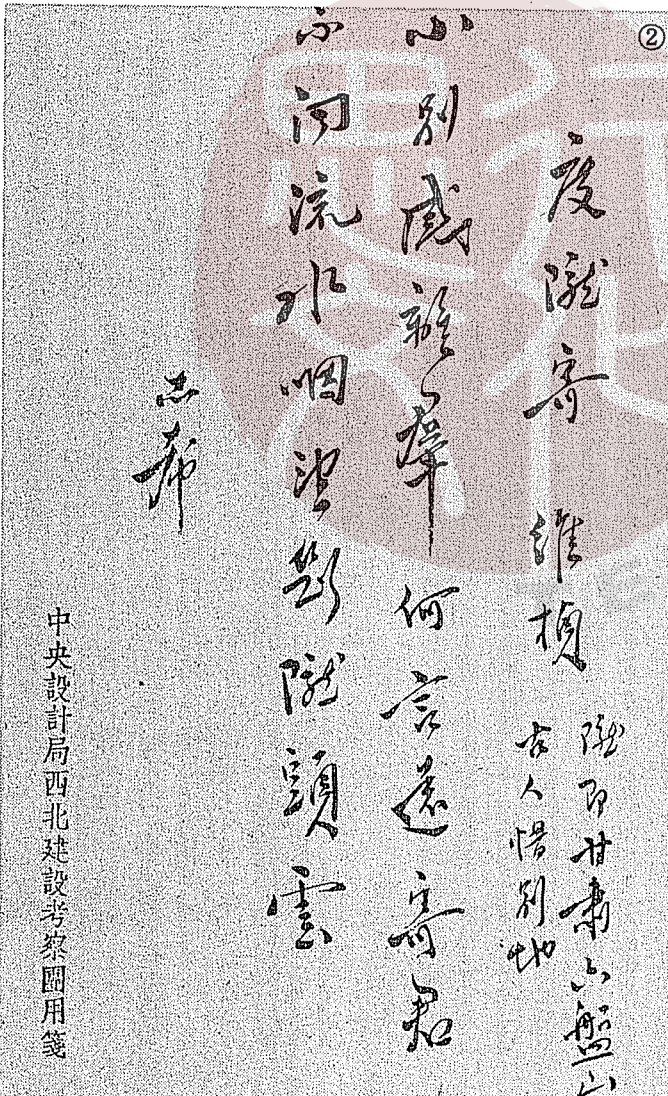 ②
度隴寄 維楨
隴即甘肅六盤山
古人惜別地
小別感離羣何言遠寄君
不問流水咽望斷隴頭雲
志希
中央設計局西北建設考察團用箋